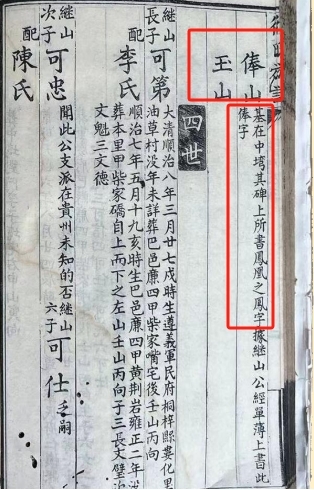 俸山
玉山
墓在中塆其碑上所書鳳凰之鳳字據継山公經單薄上書此
俸字
四世
継山
長子可第
配李氏
大清順治八年三月廿七戌時生遵義軍民府桐梓縣婁化里
油草村没年未詳葬巴邑廉四甲柴家嘴宅後壬山丙向
順治七年五月十九亥時生巴邑廉四甲黄荆岩雍正二年
葬本里甲柴家礄自上而下之左山壬山丙向子三長文璧次
文魁三文德
継山
次子可忠
配陳氏
聞此公支派在貴州未知的否継山
六子可仕乏嗣